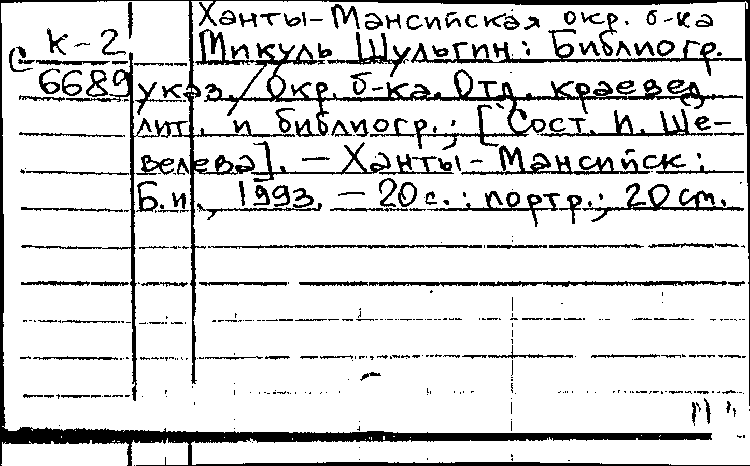 Ханты-Мансийская окр. б-ка
С К-2
6689
Микуль Шульгин: Библиогр.
указ. / Окр. б-ка. Отд. краевед.
лит. и библиогр.; [Сост. Н. Ше-
велева]. — Ханты-Мансийск:
Б.и., 1993. — 20 с.: портр.; 20 см.